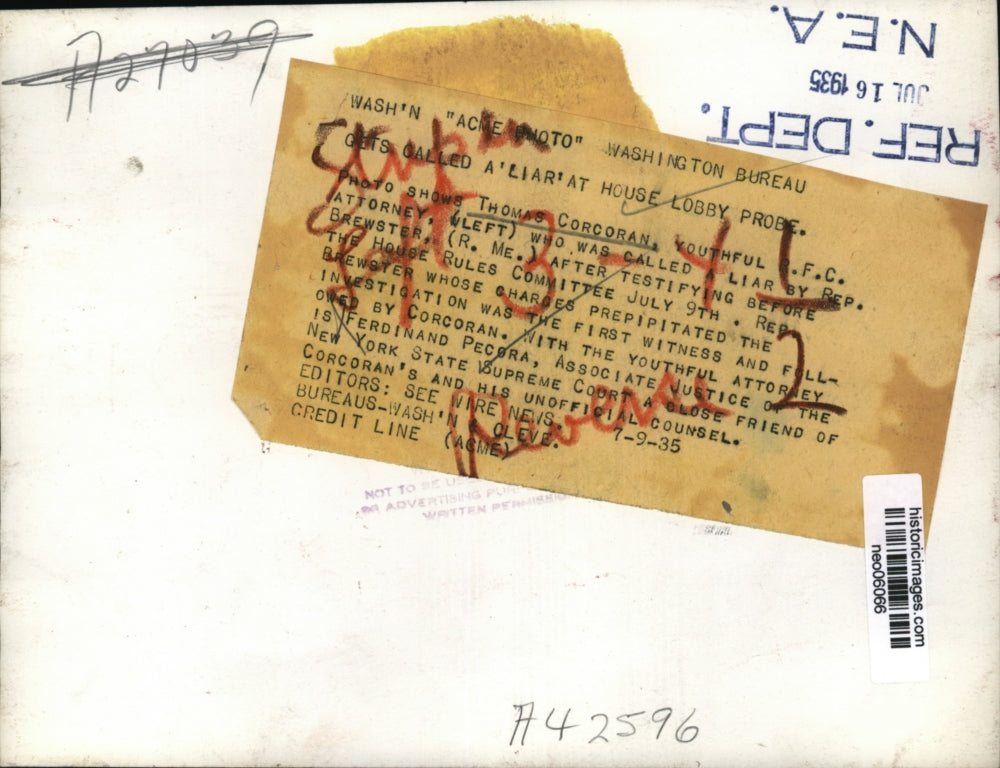 A27039
N.E.A.
JUL 16 1935
REF. DEPT.
WASH'N "ACME PHOTO" WASHINGTON BUREAU
GETS CALLED A 'LIAR' AT HOUSE LOBBY PROBE.
PHOTO SHOWS THOMAS CORCORAN, YOUTHFUL R.F.C.
ATTORNEY, (LEFT) WHO WAS CALLED A LIAR BY REP.
BREWSTER, (R. ME.) AFTER TESTIFYING BEFORE
THE HOUSE RULES COMMITTEE JULY 9TH. REP.
BREWSTER WHOSE CHARGES PREPIPITATED THE
INVESTIGATION WAS THE FIRST WITNESS AND FOLL-
OWED BY CORCORAN. WITH THE YOUTHFUL ATTORNEY
IS FERDINAND PECORA, ASSOCIATE JUSTICE OF THE
NEW YORK STATE SUPREME COURT A CLOSE FRIEND OF
CORCORAN'S AND HIS UNOFFICIAL COUNSEL.
EDITORS: SEE WIRE NEWS.
BUREAUS-WASH'N & CLEVE. 7-9-35
CREDIT LINE (ACME)
1
2
3
4
Reverse
NOT TO BE US
OR ADVERTISING PUR
WRITTEN PERMISSION
historicimages.com
neo06066
A42596